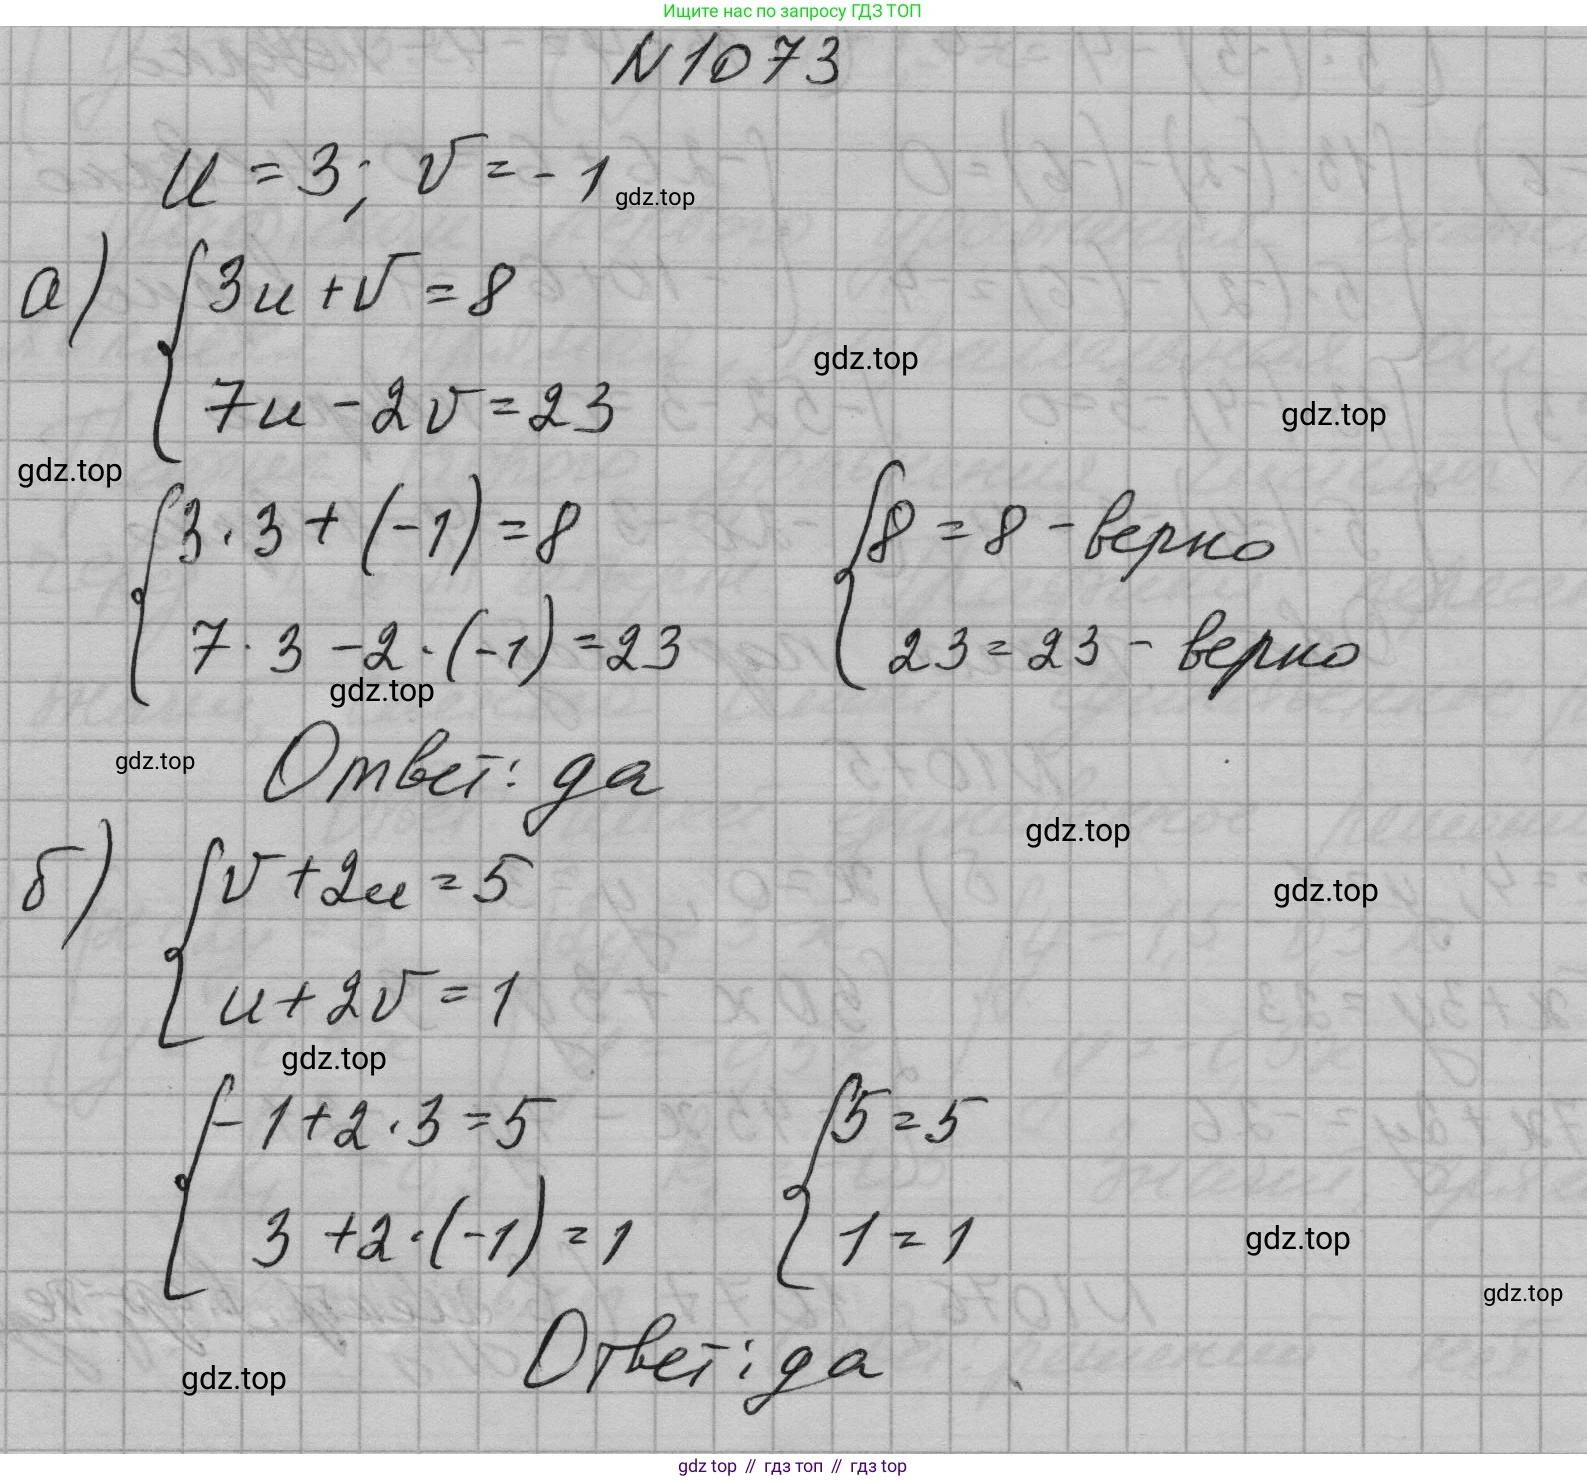 Ищите нас по запросу ГДЗ ТОП
N1073
u = 3; v = - 1
gdz.top
а) { 3u + v = 8
gdz.top
7u - 2v = 23
gdz.top
gdz.top
{ 3 · 3 + (-1) = 8 { 8 = 8 - верно
7 · 3 - 2 · (-1) = 23 23 = 23 - верно
gdz.top
gdz.top
Ответ: да
gdz.top
б) { v + 2u = 5
gdz.top
u + 2v = 1
gdz.top
{ - 1 + 2 · 3 = 5 { 5 = 5
3 + 2 · (-1) = 1 1 = 1
gdz.top
gdz.top
Ответ: да
gdz.top
gdz top // гдз топ // гдз top